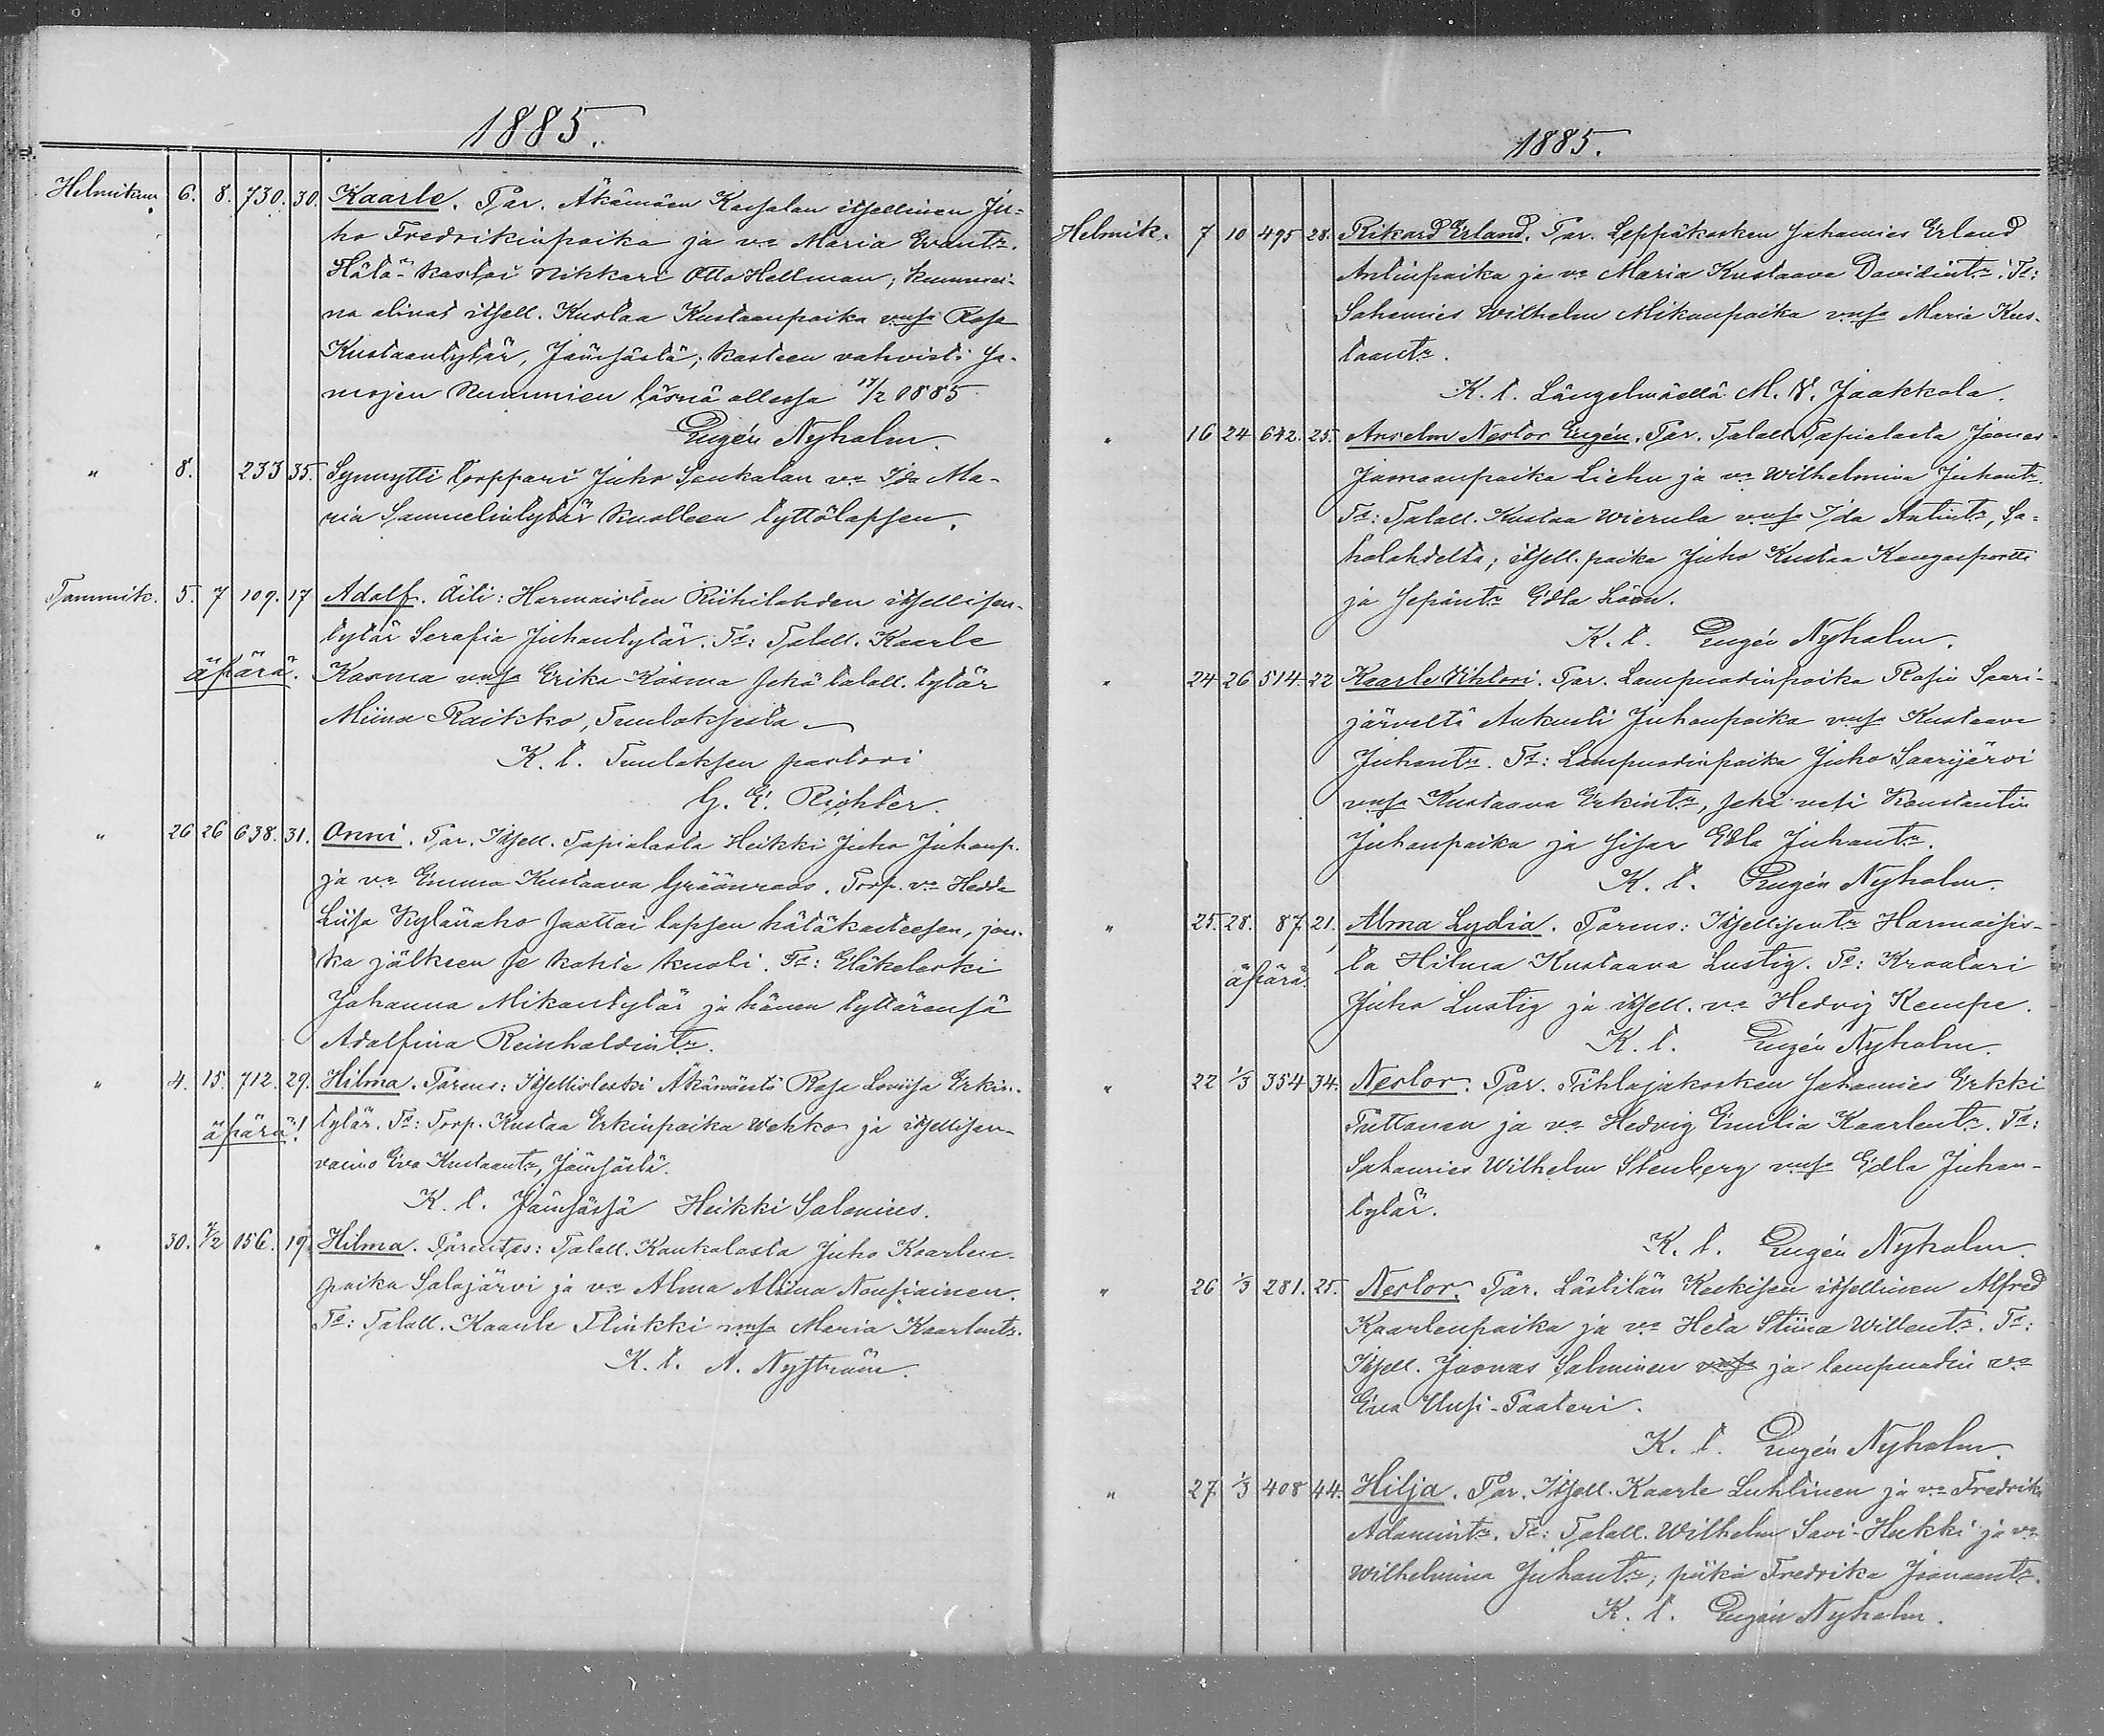 1885.
Helmikuu 6. 8. 730. 30. Kaarle. Par. Äkämäen Karjalan itsellinen Ju-
ho Fredrikinpoika ja v:o Maria Evantr.
Hätä-kastoi Nikkari Otto Hellman; kummei-
na olivat itsell. Kustaa Kustaanpoika vmsa Rosa
Kustaantytär, Jämsästä; kasteen vahvisti sa-
mojen kummien läsnä ollessa 17/2 1885
Eugén Nyholm.
" 8. 233 35. Synnytti torppari Juho Saukalan v:o Ida Ma-
ria Samuelintytär kuolleen tyttölapsen.
Tammik. 5. 7 109. 17 Adolf. Äiti: Harmoisten Riihilahden itsellisen-
tytär Serafia Juhantytär. Td: Talall. Kaarle
äpärä. Kosma vmsa Erika Kosma sekä talall. tytär
Miina Raikko, Tuuloksesta
K. t. Tuuloksen pastori
G. E. Richter.
" 26 26 638. 31. Onni. Par. Itsell. Tapialasta Heikki Juho Juhanp.
ja v:o Emma Kustaava Gräänroos. Torp. v:o Hedda
Liisa Kylänaho saattoi lapsen hätäkasteesen, jon-
ka jälkeen se kohta kuoli. Td: Eläkeleski
Johanna Mikontytär ja hänen tyttärensä
Adolfina Reinholdintr.
" 4. 15. 712. 29. Hilma. Parens: Itsellisleski Äkämäestä Rosa Lovisa Erkin-
äpärä! tytär. Td: Torp. Kustaa Erkinpoika Wehko ja itsellisen-
vaimo Eva Kustaantr, Jämsästä.
K. t. Jämsässä Heikki Salonius.
" 30. 7/2 156. 19 Hilma. Parentes: Talall. Kaukolasta Juho Kaarlen-
poika Salajärvi ja v:o Alma Aliina Nousiainen.
Td: Talall. Kaarle Flinkki vmsa Maria Kaarlentr.
K. t. A. Nyström.
1885.
Helmik. 7 10 495 28. Rikard Erland. Par. Leppäkosken sahamies Erland
Antinpoika ja v:o Maria Kustaava Davidintr. Td:
Sahamies Wilhelm Mikonpoika vmsa Maria Kus-
taantr.
K. t. Längelmäellä M. V. Jaakkola.
" 16 24 642. 25. Anselm Nestor Eugén. Par. Talall. Tapialasta Joonas
Joonaanpoika Liehu ja v:o Wilhelmina Juhantr.
Td: Talall. Kustaa Wierula vmsa Ida Antintr, Sa-
halahdelta; itsell. poika Juho Kustaa Kangasportti
ja sepäntr Edla Löön.
K. t. Eugén Nyholm.
" 24 26 514. 22 Kaarle Vihtori. Par. Lampuodinpoika Rasin Saari-
järveltä Aukusti Juhonpoika vmsa Kustaava
Juhantr. Td: Lampuodinpoika Juho Saarijärvi
vmsa Kustaava Erkintr, sekä veli Konstantin
Juhanpoika ja sisar Edla Juhantr.
K. t. Eugén Nyholm.
" 25. 28. 87 21. Alma Lydia. Parens: Itsellisentr Harmoisis-
äpärä. ta Hilma Kustaava Lustig. Td: Kraatari
Juho Lustig ja itsell. v:o Hedvig Kempe.
K. t. Eugén Nyholm.
" 22 1/3 354 34. Nestor. Par. Pihlajakosken sahamies Erkki
Puttonen ja v:o Hedvig Emilia Kaarlentr. Td:
Sahamies Wilhelm Stenberg vmsa Edla Juhan-
tytär.
K. t. Eugén Nyholm.
" 26 1/3 281. 25. Nestor. Par. Lästilän Keskisen itsellinen Alfred
Kaarlenpoika ja v:o Heta Stiina Willentr. Td:
Itsell. Joonas Salminen vmsa ja lampuodin v:o
Eva Uusi-Paateri.
K. t. Eugén Nyholm.
" 27 1/3 408 44. Hilja. Par. Itsell. Kaarle Luhtinen ja v:o Fredrika
Adamintr. Td: Talall. Wilhelm Savi-Hukki ja v:o
Wilhelmina Juhantr; piika Fredrika Joonaantr.
K. t. Eugén Nyholm.